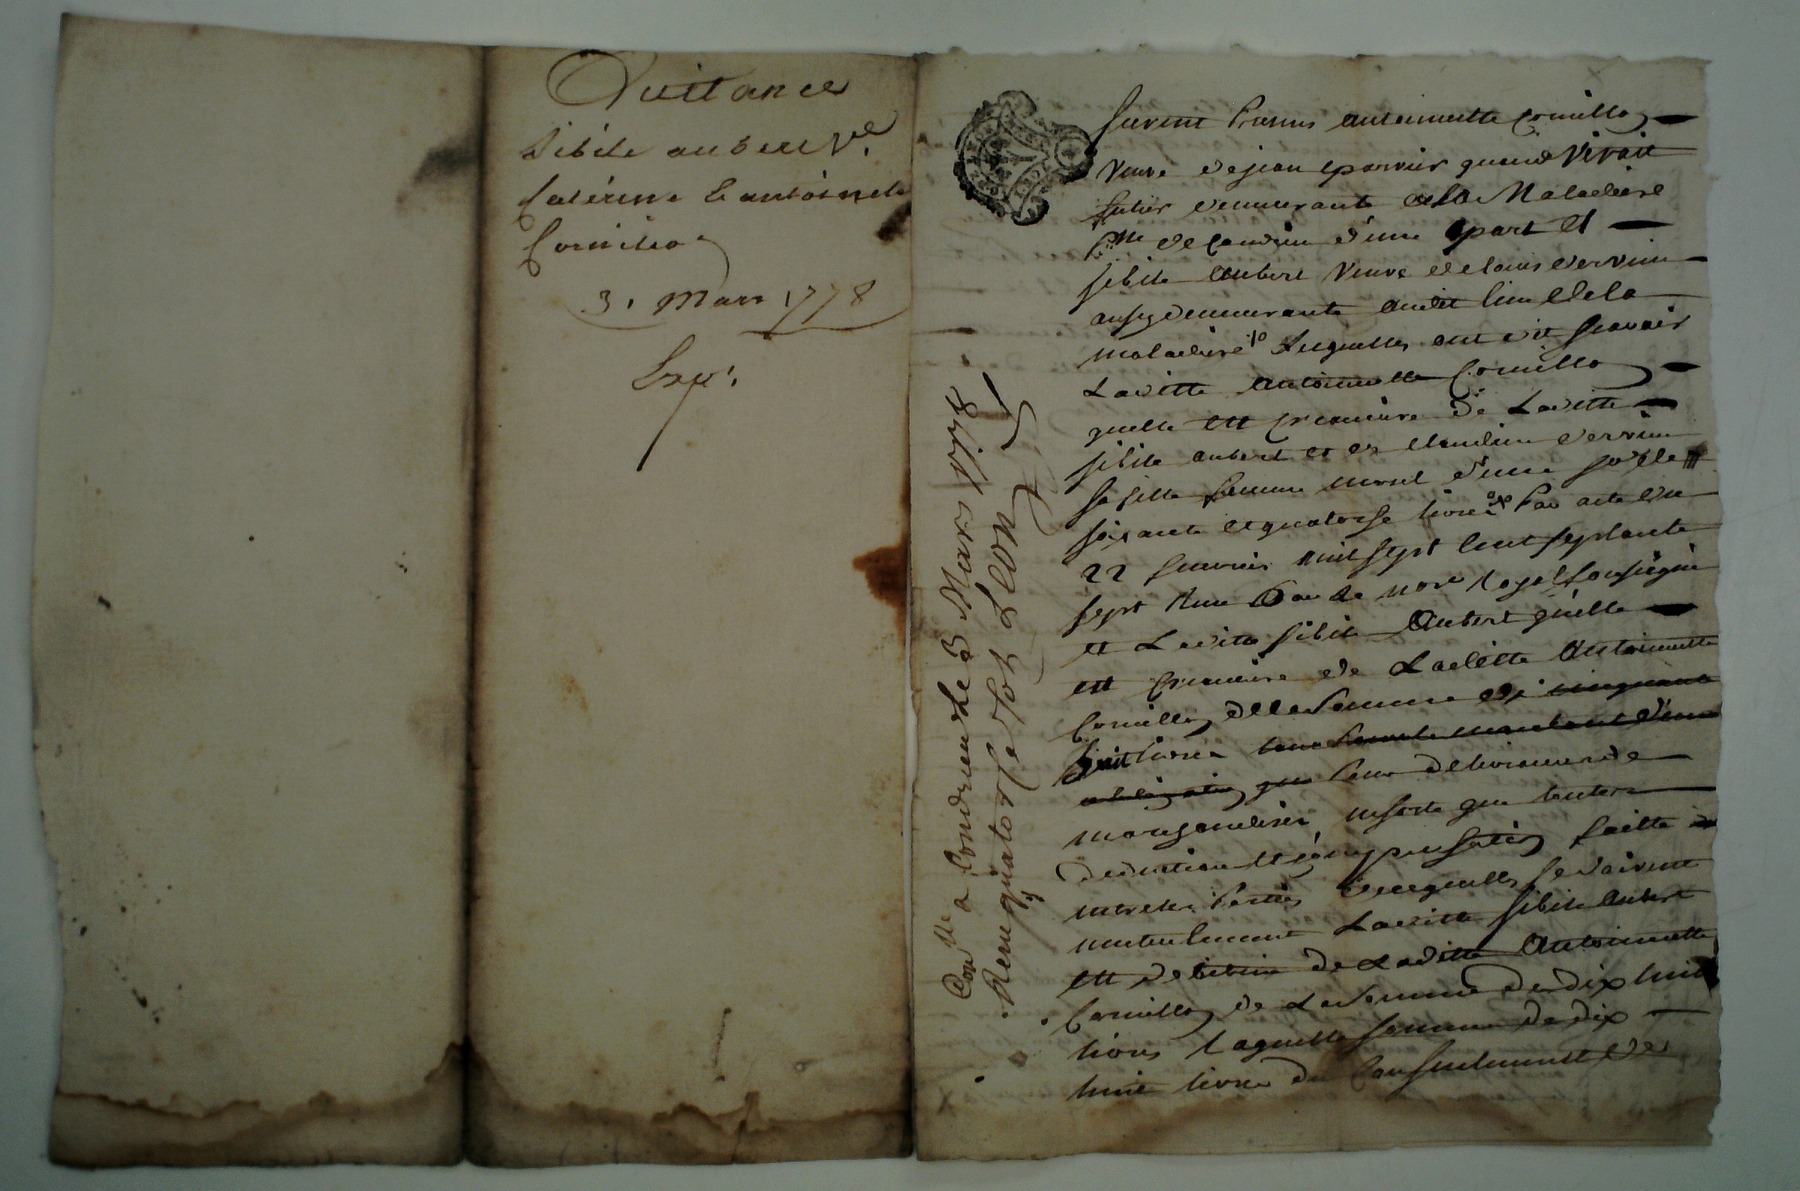 Quittance
Sibile aubert Ve.
Caterine & antoinete
Cornillon
3. Mars 1778
Exp.
Con.lle a Condrieu Le 3 Mars 1778
Reçu quatorse sols
furent Presens antoinette Cornillon
veuve de jean quand vivait
demeurante a la Maladiere
Psse de Condrieu d'une part Et
sibile Aubert Veuve de louis Dervieu
aussy demeurante audit lieu de la
maladiere Lesquelles ont dit scavoir
Laditte Antoinette Cornillon
quelle Est creanciere de Laditte
sibile aubert et de Claudine Dervieu
sa fille femme d'une
soixante et quatorse livres Par acte du
22 mil sept Cent septante
sept Reçu Par Me Royal soussigné
et Laditte sibile Aubert quelle
est Creanciere de Laditte Antoinette
Cornillon de la somme de cinquante
huit livres
que Pour delivrance de
marchandises en sorte que toutes
deduction et compensation faitte
entre les Parties de ce quelles se doivent
mutuellement Laditte sibile Aubert
est debitrice de Laditte Antoinette
Cornillon de La somme de dix huit
livres Laquelle somme de dix
huit livres du Consentement des